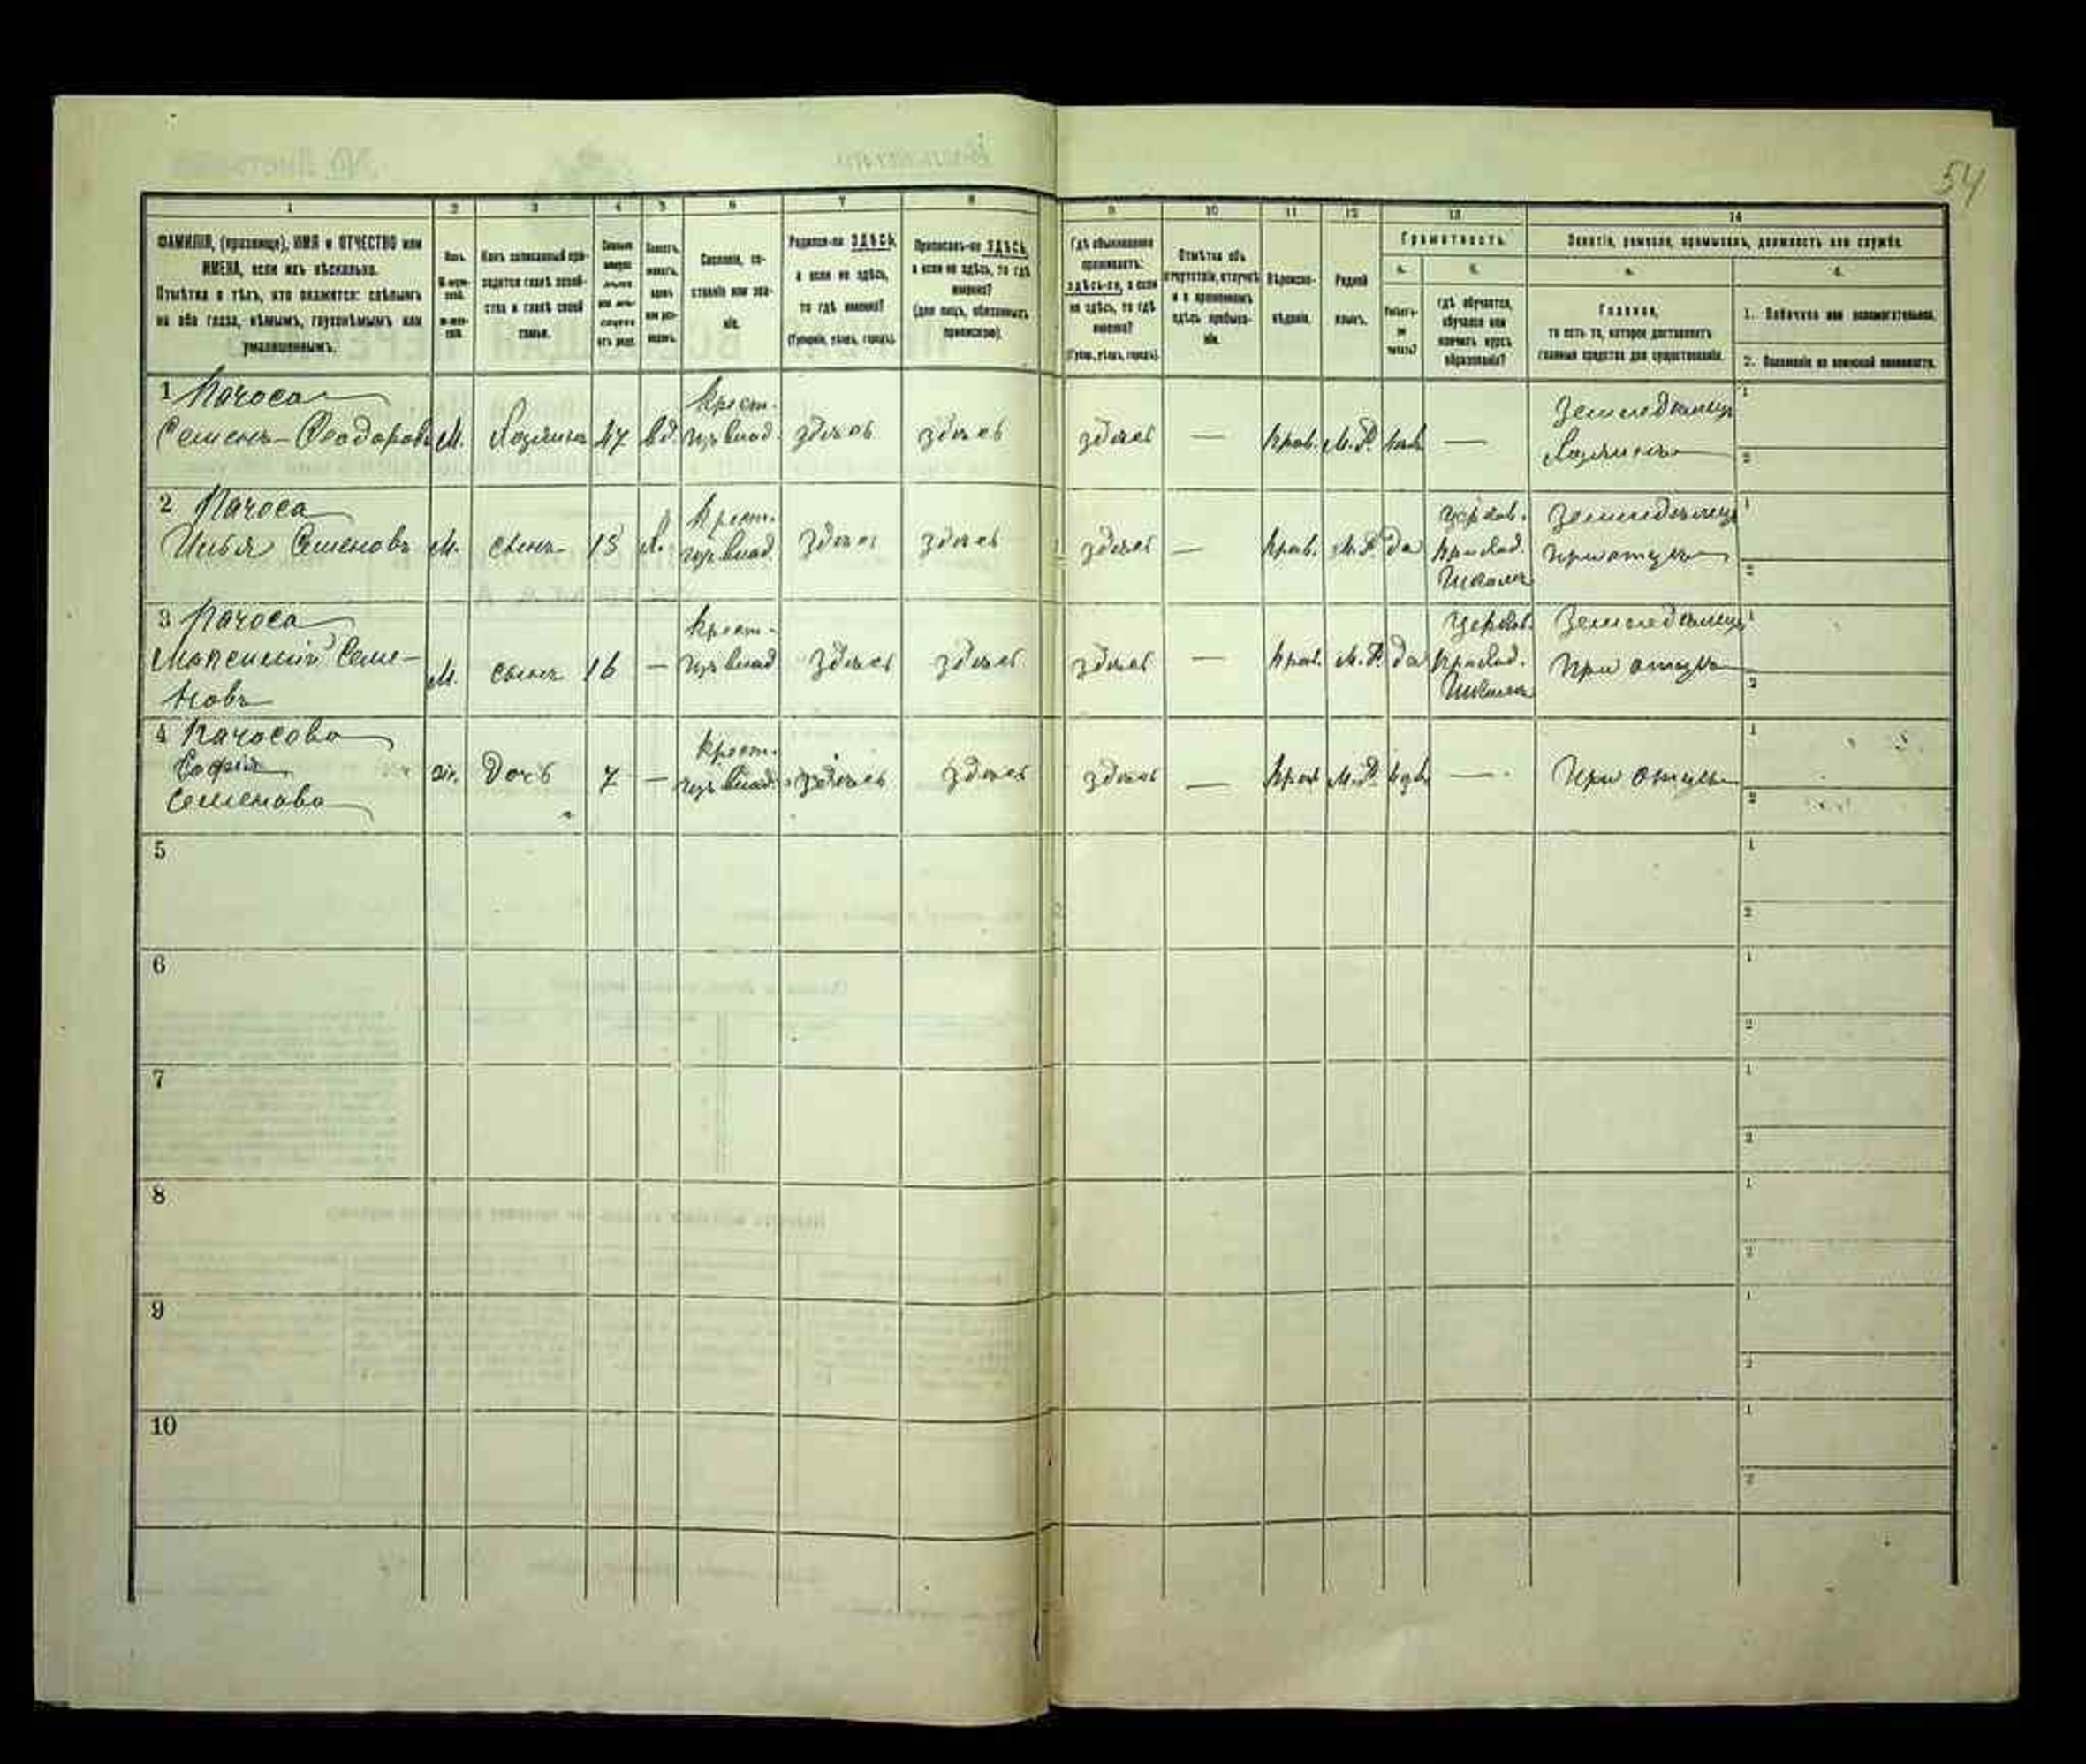 54
1 2 3 4 5 6 7 8 9 10 11 12 13 14
ФАМИЛІЯ, (прозвище), ИМЯ и ОТЧЕСТВО или
ИМЕНА, если ихъ нѣсколько.
Отмѣтка о тѣхъ, кто окажется: слѣпымъ
на оба глаза, нѣмымъ, глухонѣмымъ или
умалишеннымъ.
Полъ.
Какъ записанный при-
ходится главѣ хозяй-
ства и главѣ своей
семьи.
Сословіе, со-
стояніе или зва-
ніе.
Родился-ли ЗДѢСЬ,
а если не здѣсь,
то гдѣ именно?
(Губернія, уѣздъ, городъ).
Приписанъ-ли ЗДѢСЬ,
а если не здѣсь, то гдѣ
именно?
(для лицъ, обязанныхъ
припискою).
Гдѣ обыкновенно
проживаетъ:
здѣсь-ли, а если
не здѣсь, то гдѣ
именно?
(Губер., уѣздъ, городъ).
Отмѣтка объ
отсутствіи, отлучкѣ
и о временномъ
здѣсь пребыва-
ніи.
Вѣроиспо-
вѣданіе.
Родной
языкъ.
Грамотность.
а.
б.
Умѣетъ-
ли
читать?
гдѣ обучается,
обучался или
кончилъ курсъ
образованія?
Занятіе, ремесло, промыселъ, должность или служба.
а.
б.
Главное,
то есть то, которое доставляетъ
главныя средства для существованія.
1. Побочное или вспомогательное.
2. Положеніе по воинской повинности.
1 Начоса
Семенъ Ѳеодоровъ М. Хозяинъ 47 вд. крест. изъ влад. здѣсь здѣсь здѣсь — прав. М.Р. — Земледѣлецъ Хозяинъ 1 2
2 Начоса
Илья Семеновъ М. сынъ х. крест. изъ влад. здѣсь здѣсь здѣсь — прав. М.Р. да церков. приход. школа Земледѣлецъ при отцѣ 1 2
3 Начоса
Семе-
новъ М. сынъ 16 — крест. изъ влад. здѣсь здѣсь здѣсь — прав. М.Р. да церков. приход. школа Земледѣлецъ при отцѣ 1 2
4 Начосова
Софія
Семенова ж. дочь 7 — крест. изъ влад. здѣсь здѣсь здѣсь — прав. М.Р. — При отцѣ 1 2
5 1 2
6 1 2
7 1 2
8 1 2
9 1 2
10 1 2